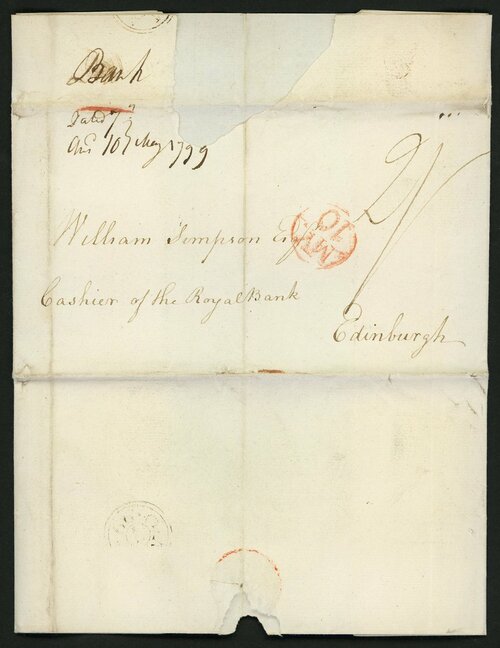 Bank
Dated 7
Ansd 10 May 1799
William Simpson Esqr
Cashier of the Royal Bank
Edinburgh
MY
10